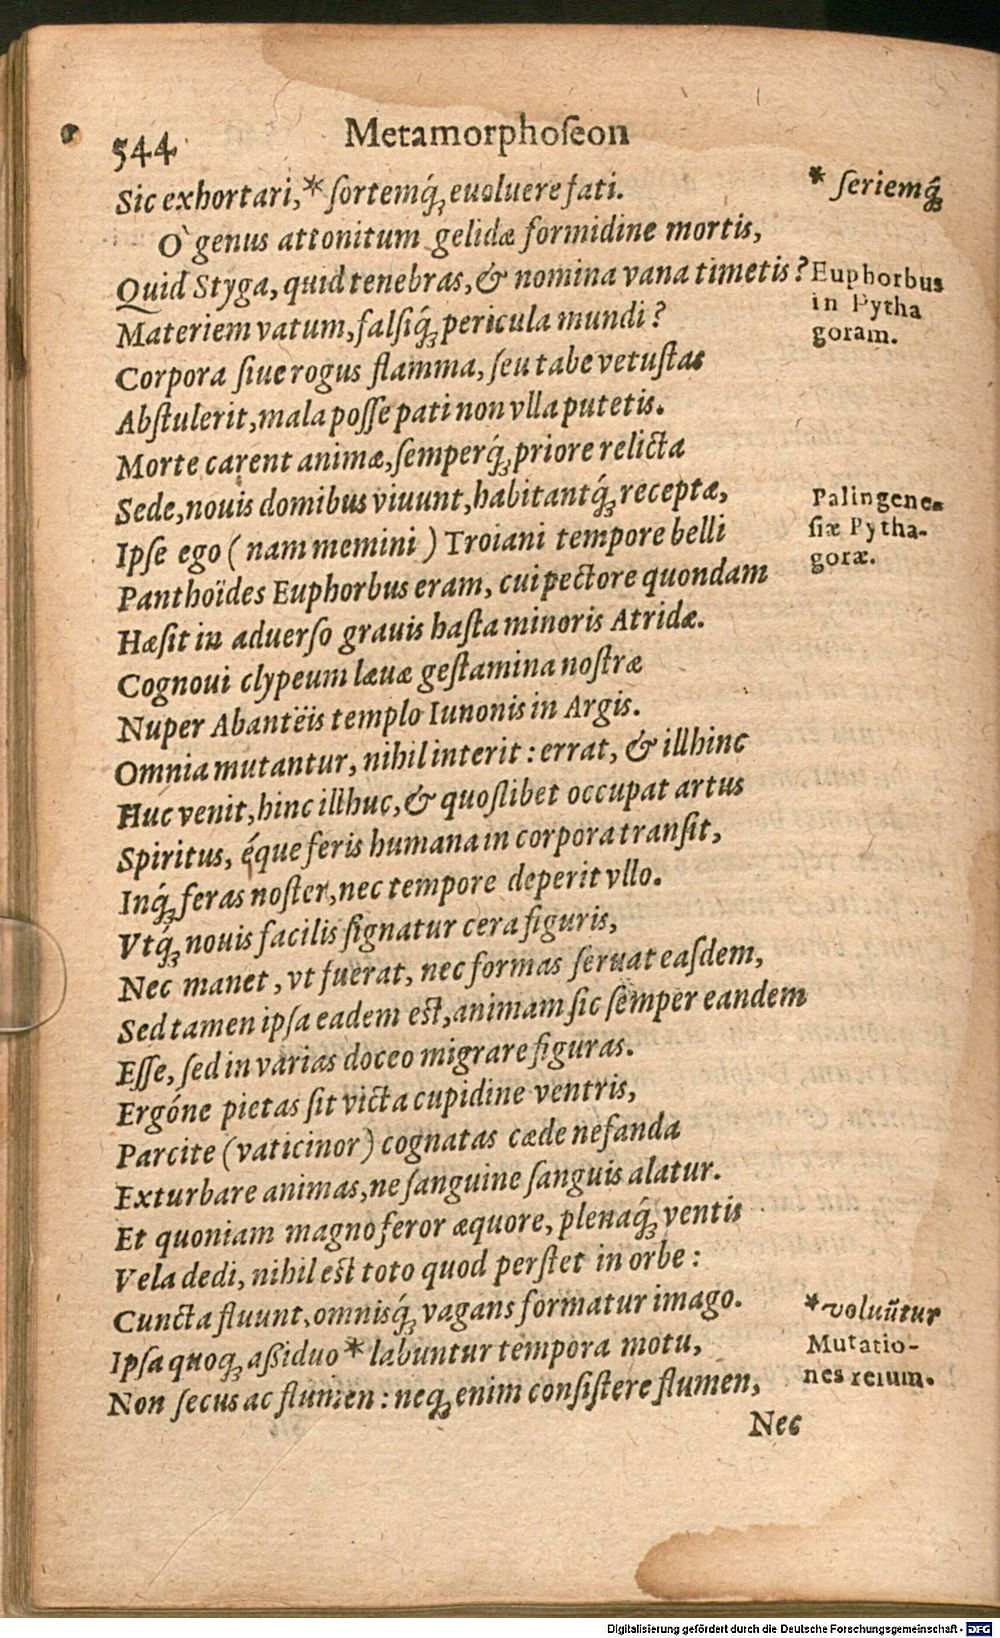 544
Metamorphoſeon
Sic exhortari,* ſortemq́ꝫ euoluere fati.
* ſeriemq́ꝫ
O` genus attonitum gelidæ formidine mortis,
Quid Styga, quid tenebras, & nomina vana timetis?
Euphorbus
in Pytha
goram.
Materiem vatum, falſiq́ꝫ pericula mundi?
Corpora ſiue rogus flamma, ſeu tabe vetuſtas
Abſtulerit, mala poſſe pati non vlla putetis.
Morte carent animæ, ſemperq́ꝫ priore relicta
Sede, nouis domibus viuunt, habitantq́ꝫ receptæ,
Palingene-
ſiæ Pytha-
goræ.
Ipſe ego ( nam memini ) Troiani tempore belli
Panthoïdes Euphorbus eram, cui pectore quondam
Hæſit in aduerſo grauis haſta minoris Atridæ.
Cognoui clypeum læuæ geſtamina noſtræ
Nuper Abantëis templo Iunonis in Argis.
Omnia mutantur, nihil interit : errat, & illhinc
Huc venit, hinc illhuc, & quoſlibet occupat artus
Spiritus, éque feris humana in corpora tranſit,
Inq́ꝫ feras noſter, nec tempore deperit vllo.
Vtq́ꝫ nouis facilis ſignatur cera figuris,
Nec manet, vt fuerat, nec formas ſeruat eaſdem,
Sed tamen ipſa eadem est, animam ſic ſemper eandem
Eſſe, ſed in varias doceo migrare figuras.
Ergóne pietas ſit victa cupidine ventris,
Parcite (vaticinor) cognatas cæde nefanda
Exturbare animas, ne ſanguine ſanguis alatur.
Et quoniam magno feror æquore, plenaq́ꝫ ventis
Vela dedi, nihil est toto quod perſtet in orbe :
Cuncta fluunt, omnisq́ꝫ vagans formatur imago.
* voluūtur
Ipſa quoqꝫ aßiduo * labuntur tempora motu,
Mutatio-
nes rerum.
Non ſecus ac flumen : neqꝫ enim conſiſtere flumen,
Nec
Digitalisierung gefördert durch die Deutsche Forschungsgemeinschaft - DFG